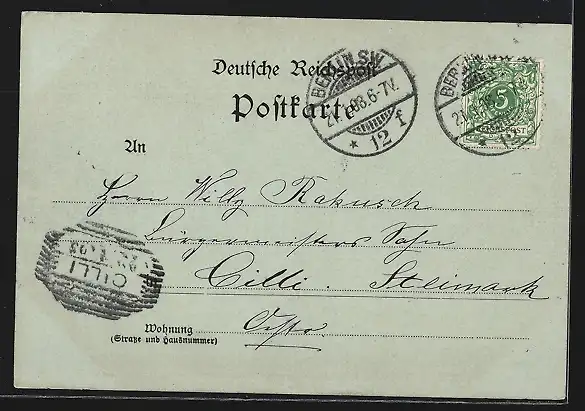 Deutsche Reichspost
Postkarte
BERLIN, S.W.
98.6-7V.
* 12 f
BERLIN S.W.
5
REICHSPOST
An
Herrn Willy Rakusch
Bürgermeisters Sohn
Cilli. Steimark
CILLI
Wohnung
(Straße und Hausnummer)